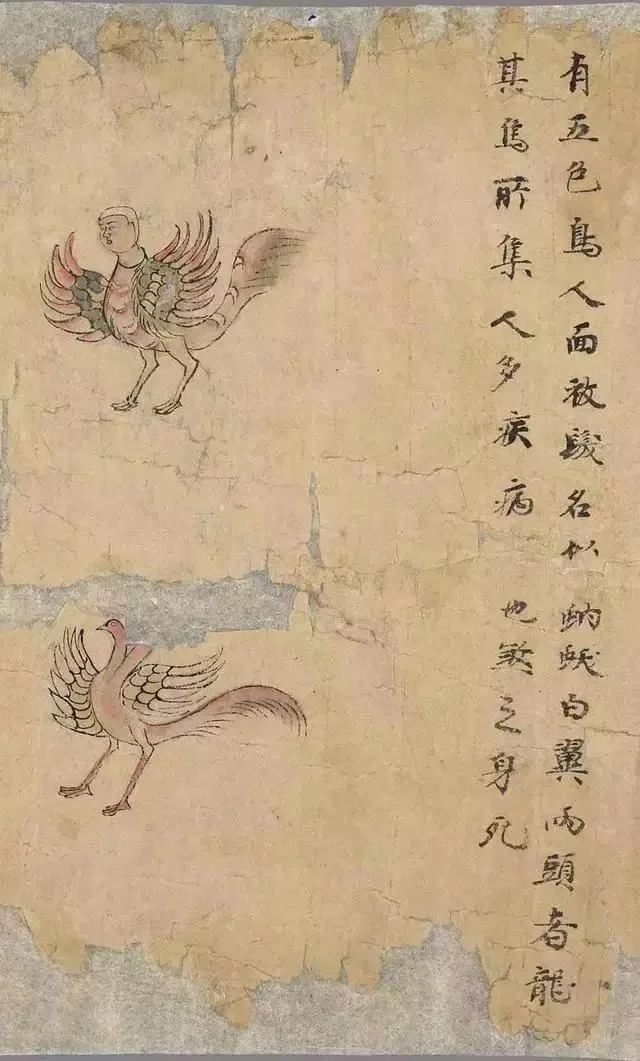 有五色鳥人面被髮名似蚋蛾白翼兩頭者龍
其鳥所集人多疾病 也煞之身死